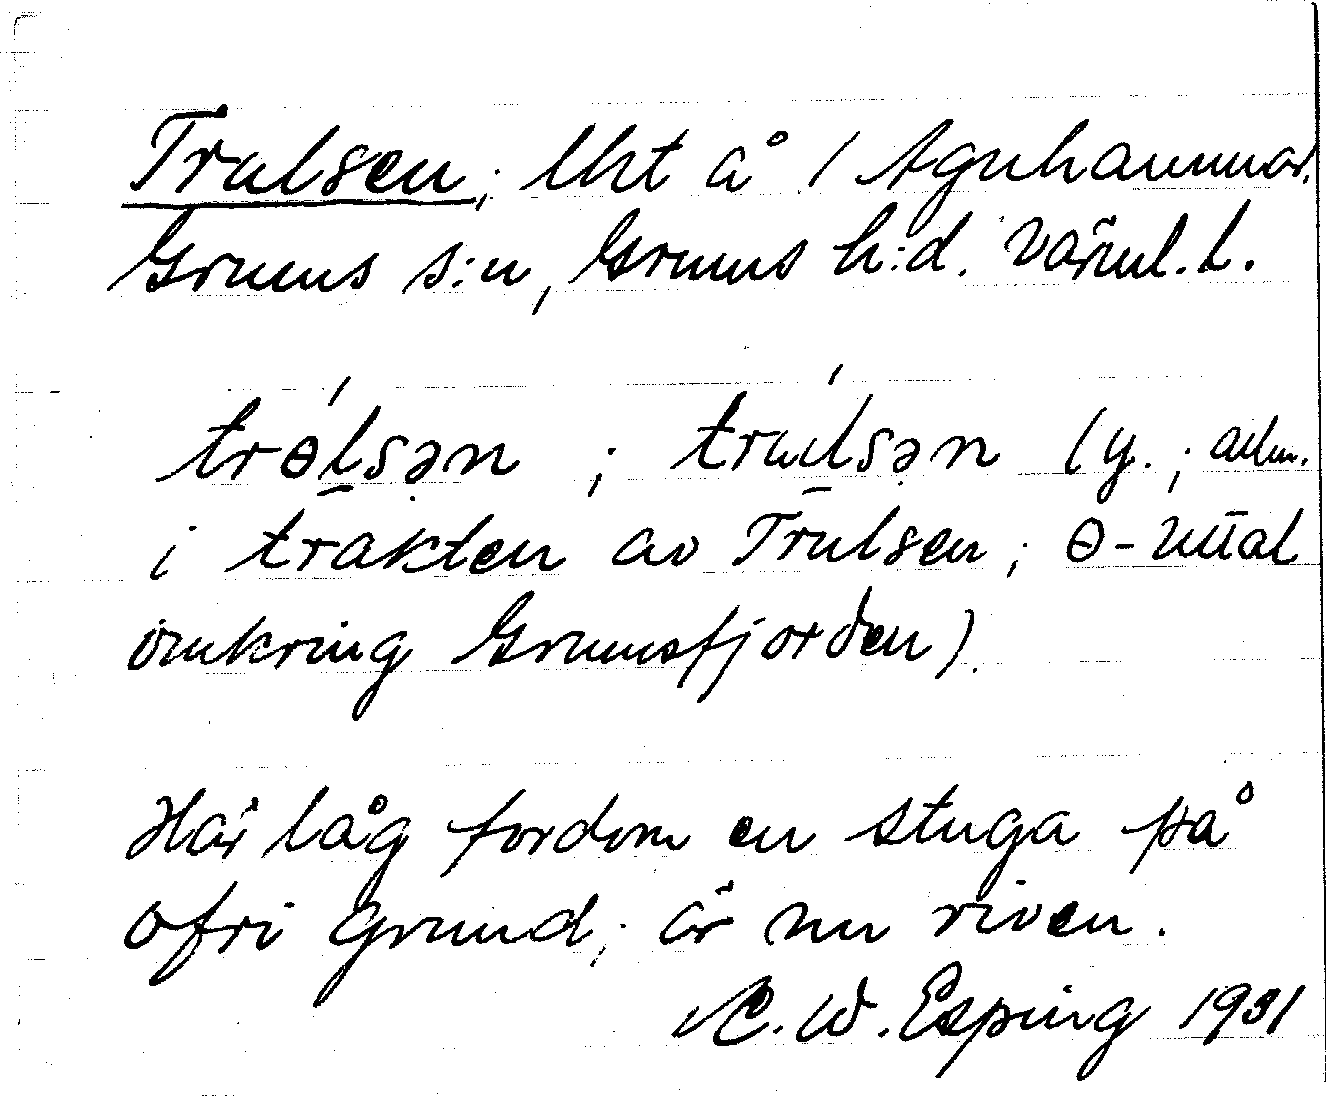 Trulsen; lht å 1 Agnhammar.
Grums s:n, Grums h:d. Värml. L.
trɵ́lsən ; trúlsən (y. ; allm.
i trakten av Trulsen; ɵ-uttal
omkring Grumsfjorden).
Här låg fordom en stuga på
ofri grund; är nu riven.
C. W. Esping 1931